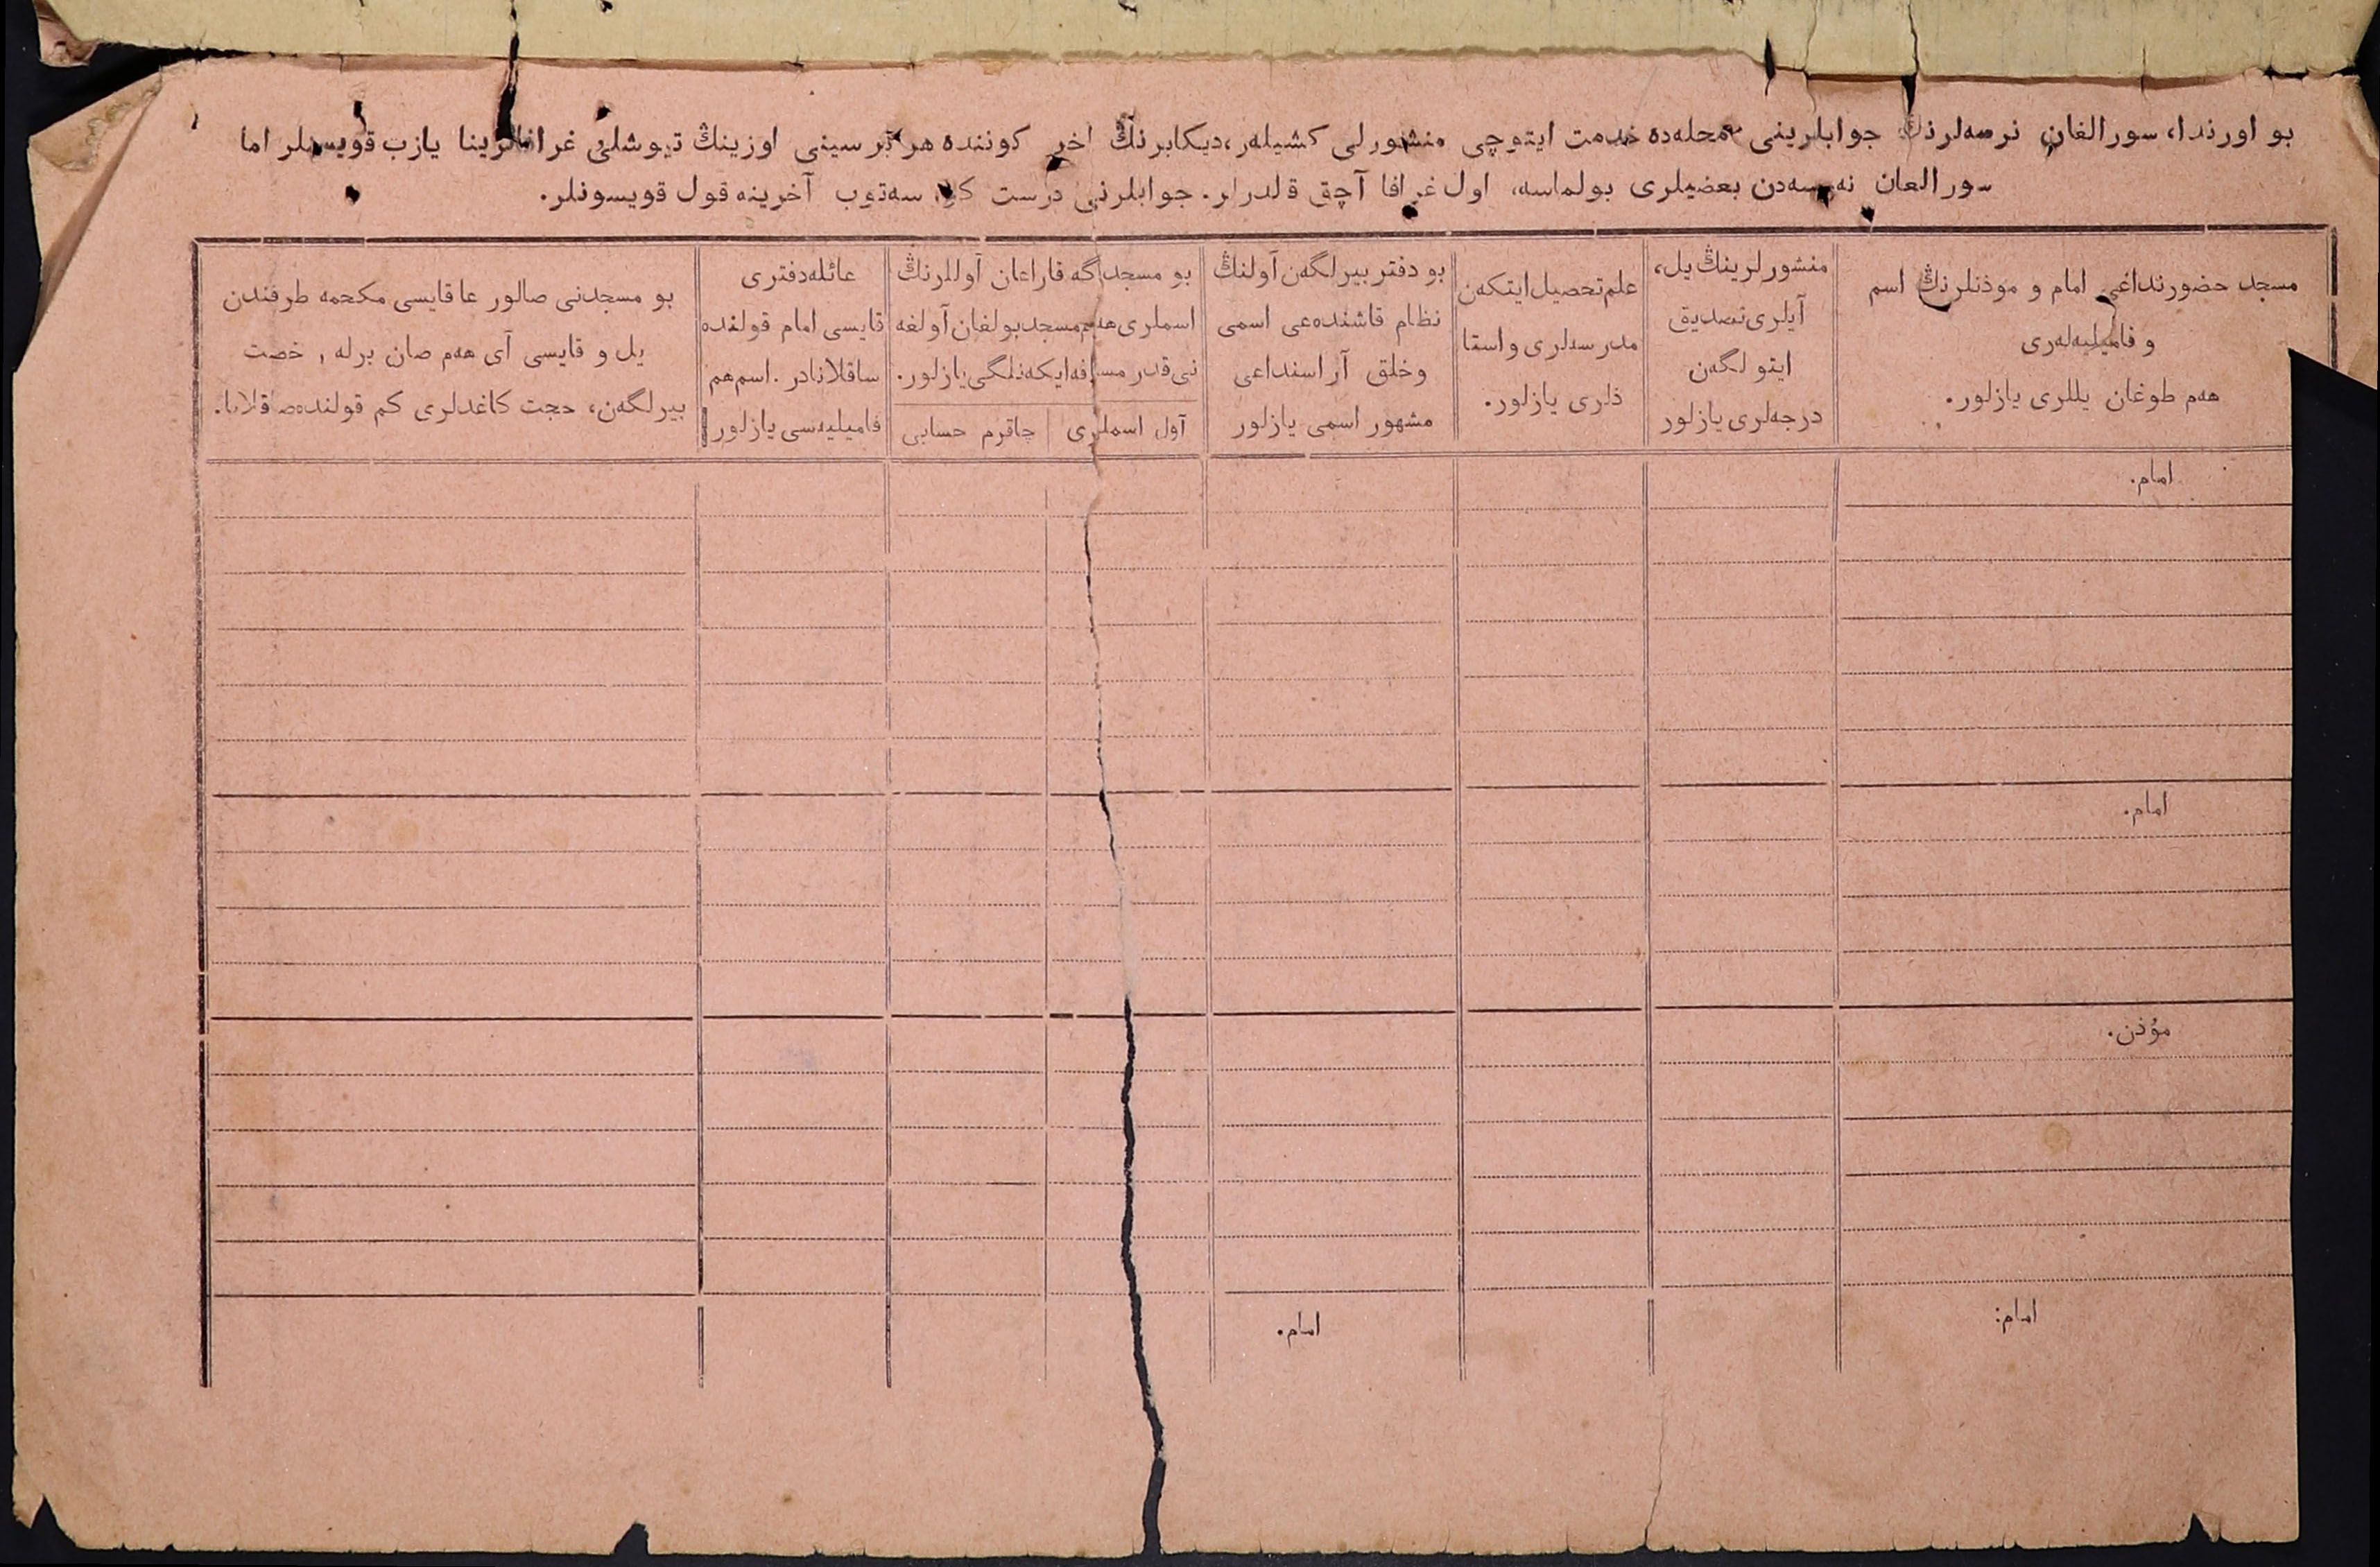 بو اورندا، سورالغان نرسه‌لرنڭ جوابلرینی محله‌ده خدمت ایتوچی منشورلی کشیله‌ر، دیکابرنڭ اخر کوننده هر بر سینی اوزینڭ تیوشلی غرافالرینا یازب قویسنلر اما
سورالغان نه‌رسه‌دن بعضیلری بولماسه، اول غرافا آچق قلدرلر. جوابلرنی درست کوـسه‌توب آخرینه قول قویسونلر.
مسجد حضورنداغی امام و موذنلرنڭ اسم
و فامیلیه‌له‌ری
هه‌م طوغان یللری یازلور.
منشورلرینڭ یل،
آیلری تصدیق
ایتولگه‌ن
درجه‌لری یازلور
علم تحصیل ایتکه‌ن
مدرسه‌لری و استا
ذلری یازلور.
بو دفتر بیرلگه‌ن آولنڭ
نظام قاشنده‌عی اسمی
و خلق آراسنداعی
مشهور اسمی یازلور
بو مسجدگه قاراعان آوللرنڭ
اسملری هه‌م مسجد بولغان آولغه
نی قدر مسافه ایکه‌نلگی یازلور.
آول اسملری
چاقرم حسابی
عائله دفتری
قایسی امام قولنده
ساقلانادر. اسم هم
فامیلیه‌سی یازلور
بو مسجدنی صالور عا قایسی محکمه طرفندن
یل و قایسی آی هه‌م صان برله رخصت
بیرلگه‌ن، حجت کاغدلری کم قولنده صاقلانا.
امام.
امام.
مؤذن.
امام:
امام.